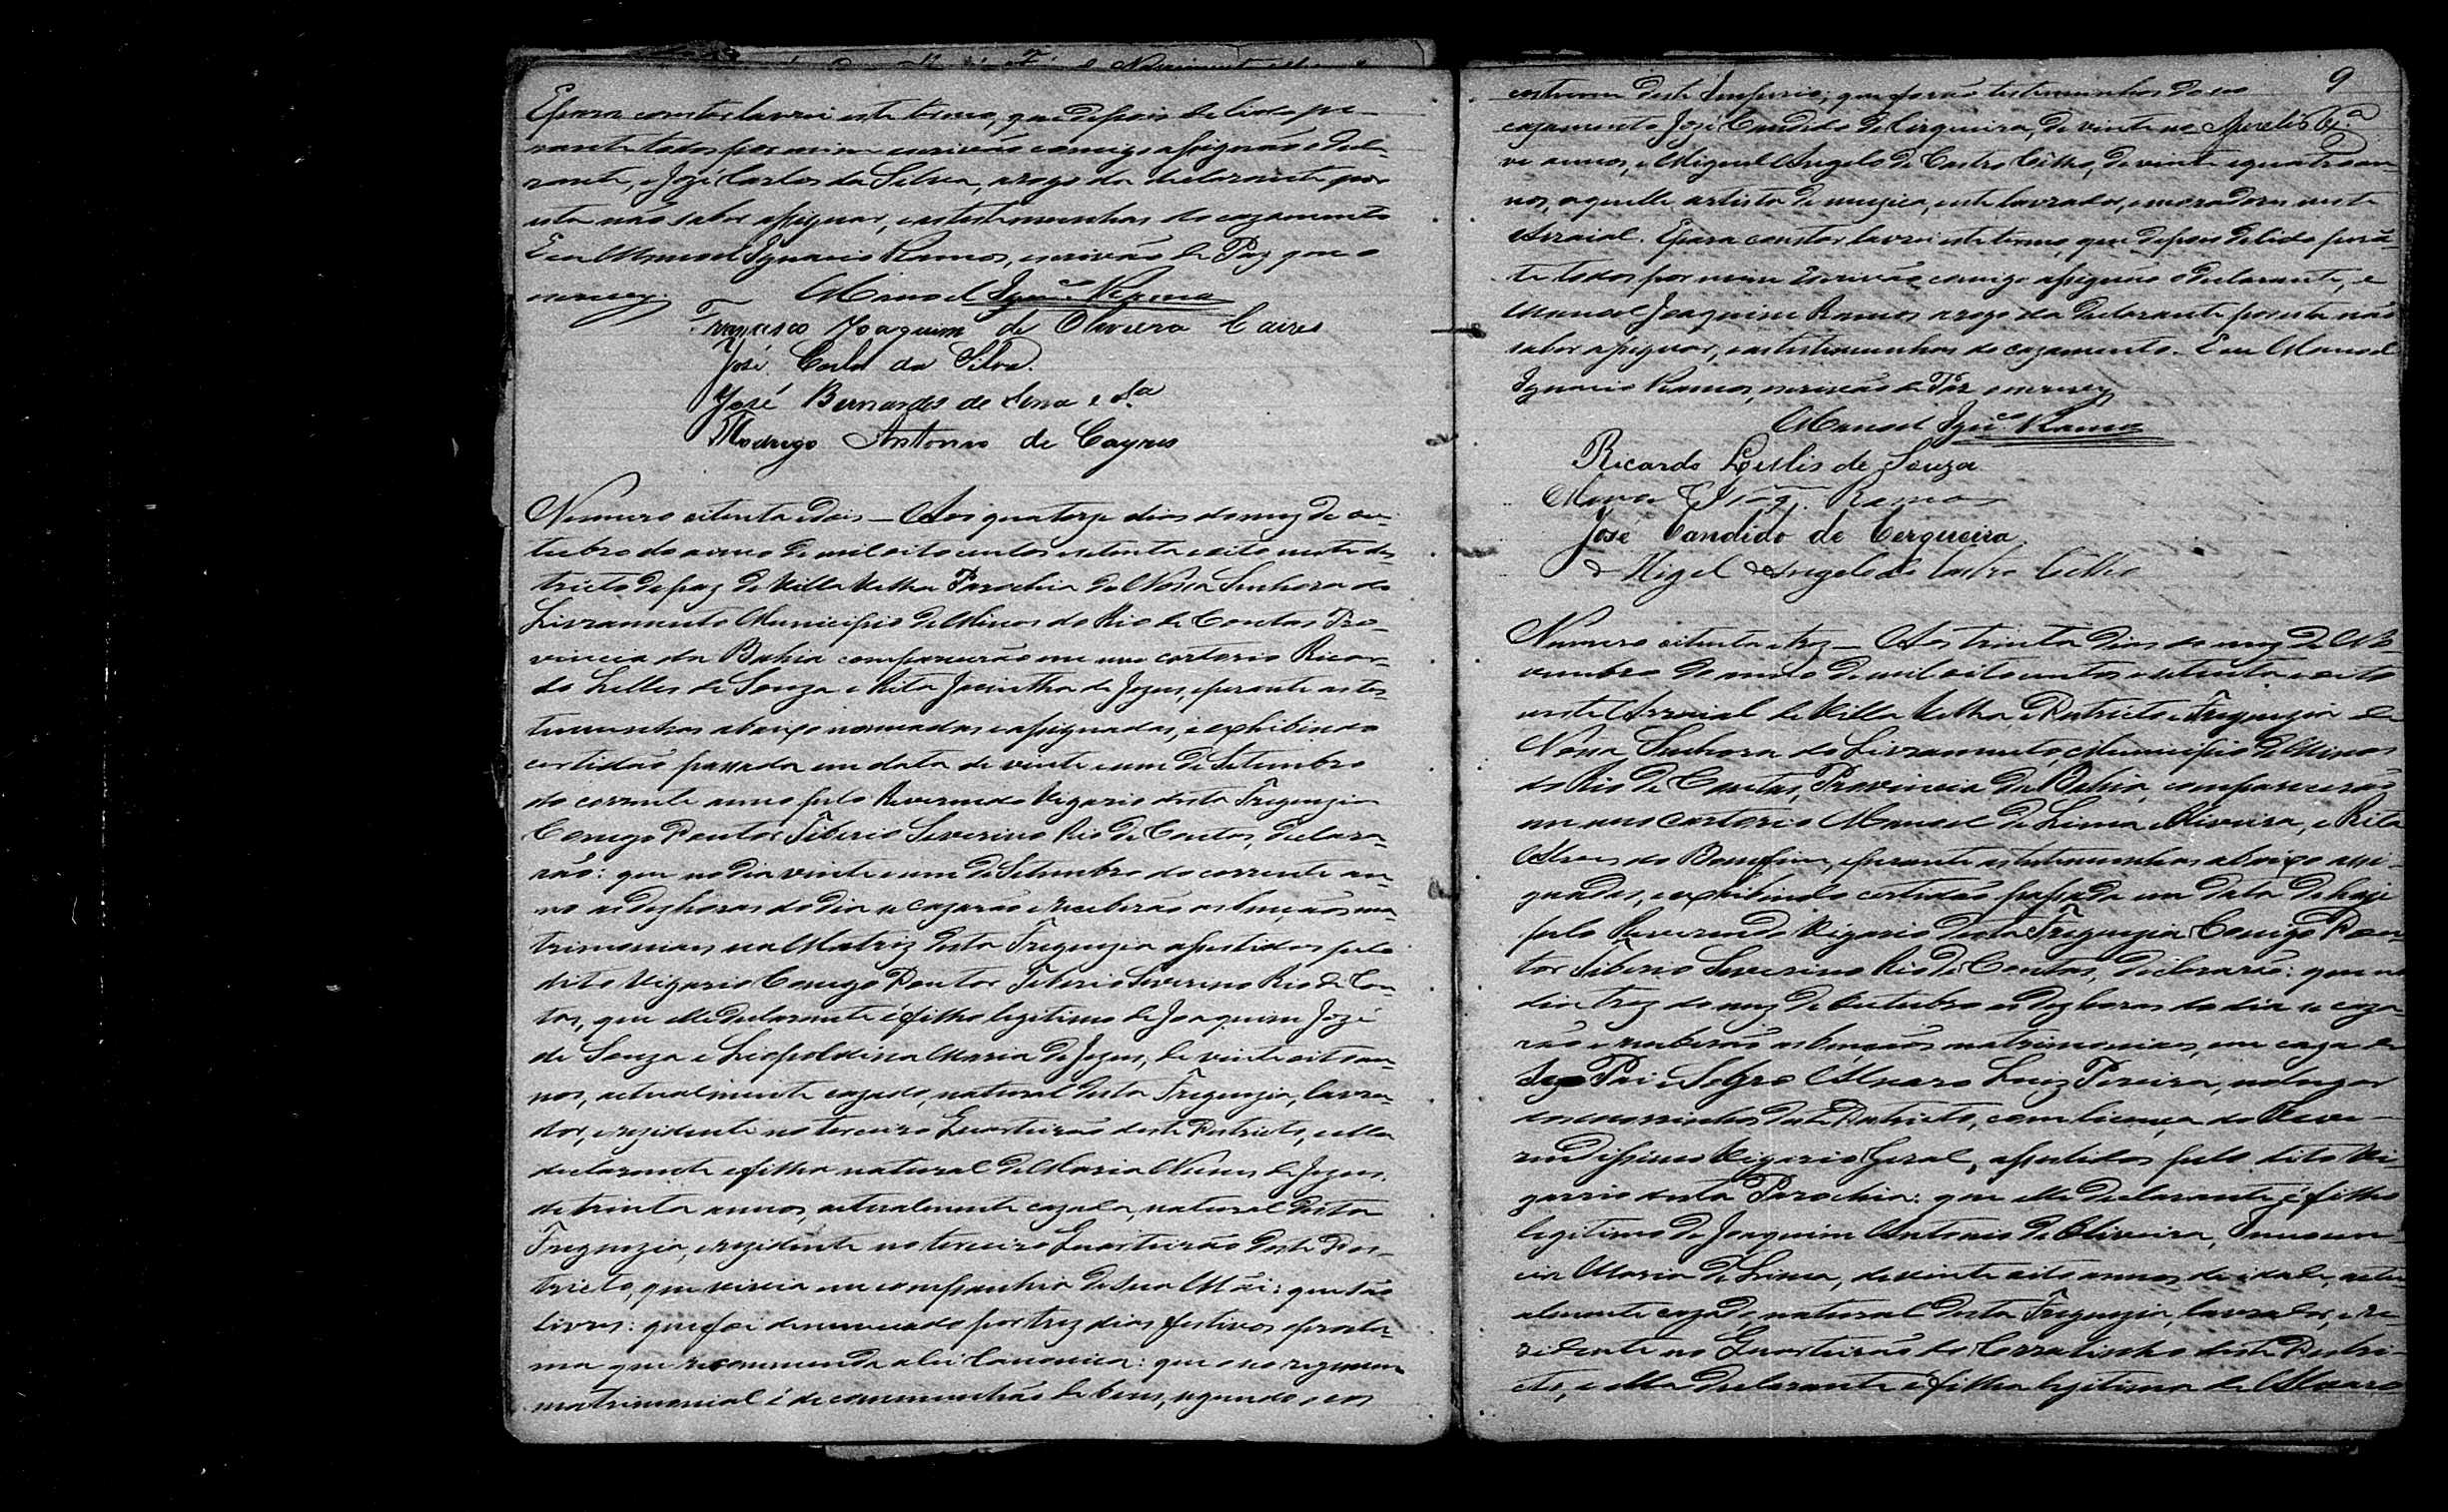 E para constar lavrei este termo, que depois de lido pe-
rante todos por mim escrivão comigo assignão o decla-
rante, e José Carlos da Silva, a rogo da declarante por
esta não saber assignar, e as testemunhas do cazamento
E eu Manoel Ignacio Ramos, escrivão de Paz que o
escrevy.
Manoel Ign.co Ramos
Francisco Joaquim de Oliveira Caires
José Carlos da Silva.
José Bernardes de Sena e S.a
Rodrigo Antonio de Cayres
Numero setenta e dois — Aos quatorze dias do mez de ou-
tubro do anno de mil oito centos e setenta e oito neste des-
tricto de paz de Villa Velha Parochia de Nossa Senhora do
Livramento Municipio de Minas do Rio de Contas Pro-
vincia da Bahia comparecerão em meu cartorio Ricar-
do Lelles de Souza e Rita Jacintha de Jezus, e perante as tes-
temunhas abaixo nomeadas e assignadas, e exhibindo
certidão passada em data de vinte e um de Setembro
do corrente anno pelo Reverendo Vigario desta Freguezia
Conego Doutor Tiberio Severino Rio de Contas, declara-
rão: que no dia vinte e um de Setembro do corrente an-
no as dez horas do dia se cazarão e receberão as bençãos ma-
trimoniaes na Matriz desta Freguezia assistidos pelo
dito Vigario Conego Doutor Tiberio Severino Rio de Con-
tas, que elle declarante é filho legitimo de Joaquim José
de Souza e Leopoldina Maria de Jezus, de vinte oito an-
nos, actualmente cazado, natural desta Freguezia, lavra-
dor, e rezidente no terceiro Quarteirão deste Destricto, e ella
declarante é filha natural de Maria Nunes de Jezus.
de trinta annos, actualmente cazada, natural desta
Freguezia, e rezidente no terceiro Quarteirão deste Des-
tricto, que vivia em companhia de sua Mãi: que são
livres: que foi denunciado por trez dias festivos a forma-
ma que recommenda a lei Canonica: que o seo regimen
matrimonial é de communhão de bens, segundo os
9
costumes deste Imperio; que forão testemunhas do seo
cazamento José Candido de Cirqueira, de vinte no-
ve annos, e Miguel Angelo de Castro Cêlho, de vinte e quatro an-
nos, aquelle artista de muzica, este lavrador, e moradores neste
Arraial. E para constar lavrei este termo, que depois de lido perã-
te todos por mim Escrivão comigo assignão o declarante, e
Manoel Joaquim Ramos a rogo da declarante por esta não
saber assignar, e as testemunhas do cazamento. E eu Manoel
Ignacio Ramos, escrivão de Paz o escrevy
Manoel Ign.co Ramos
Ricardo Lellis de Souza
Manoel Joaq.m Ramos
José Candido de Cerqueira.
Migel Angelo de Castro Cêlho
Numero setenta e trez — Aos trinta dias do mez de No-
vembro do anno de mil oito centos e setenta e oito
neste Arraial de Villa Velha, Destricto e Freguezia de
Nossa Senhora do Livramento, Municipio de Minas
do Rio de Contas, Provincia da Bahia, comparecerão
em meu Cartorio Manoel de Lima e Oliveira, e Rita
Alves do Bomfim, e perante as testemunhas abaixo assi-
gnadas, e exhibindo certidão passada em data de hoje
pelo Reverendo Vigario desta Freguezia Conego Dou-
tor Tiberio Severino Rio de Contas, declararão: que no
dia trez do mez de Outubro as dez horas do dia se caza-
rão e receberão as bençãos matrimoniaes, em caza de
seo Pai e Sogro Alvaro Luiz Pereira, no lugar
deste Destricto, com licença do Reve-
rendissimo Vigario Geral, assistidos pelo dito Vi-
gario desta Parochia: que elle declarante é filho
legitimo de Joaquim Antonio de Oliveira, e Innocen-
cia Maria de Lima, de vinte oito annos de idade, actu-
almente cazado, natural desta Freguezia, lavrador, e re-
zidente no Quarteirão do Corralinho deste Destri-
cto, e ella declarante é filha legitima de Alvaro